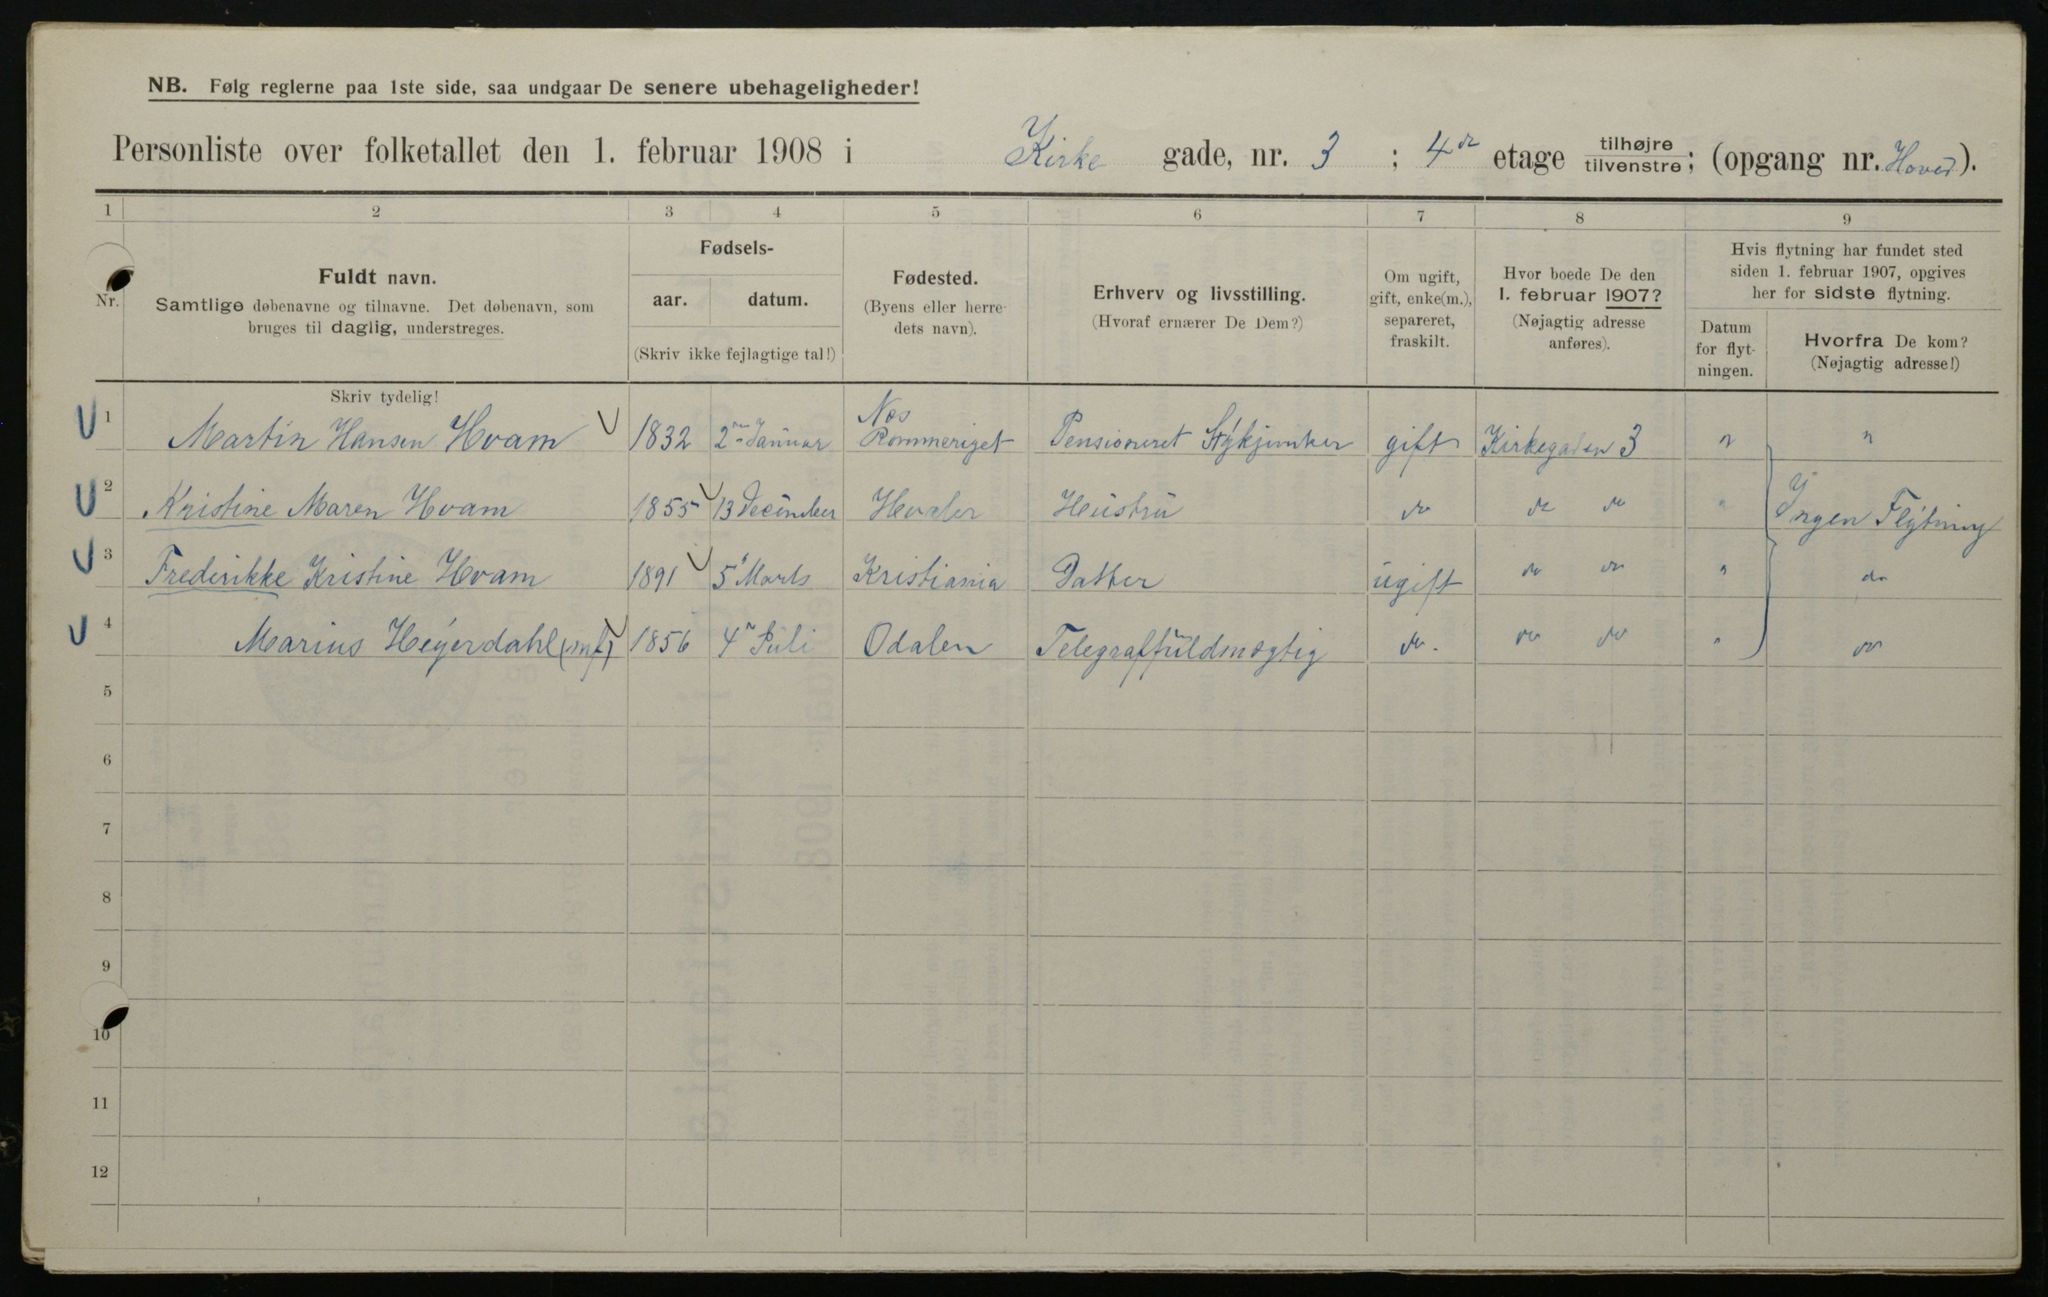 NB. Følg reglerne paa 1ste side, saa undgaar De senere ubehageligheder!
Personliste over folketallet den 1. februar 1908 i Kirke gade, nr. 3 ; 4de etage tilhøjre tilvenstre; (opgang nr. Hoved).
1 2 3 4 5 6 7 8 9
Nr.
Fuldt navn.
Samtlige døbenavne og tilnavne. Det døbenavn, som
bruges til daglig, understreges.
Fødsels-
aar. datum.
(Skriv ikke fejlagtige tal!)
Fødested.
(Byens eller herre-
dets navn).
Erhverv og livsstilling.
(Hvoraf ernærer De Dem?)
Om ugift,
gift, enke(m.),
separeret,
fraskilt.
Hvor boede De den
1. februar 1907?
(Nøjagtig adresse
anføres).
Hvis flytning har fundet sted
siden 1. februar 1907, opgives
her for sidste flytning.
Datum
for flyt-
ningen.
Hvorfra De kom?
(Nøjagtig adresse!)
Skriv tydelig!
1 Martin Hansen Hvam 1832 2den Januar Nes Rommeriget Pensioneret Stykjunker gift Kirkegaden 3 " "
2 Kristine Maren Hvam 1855 13 December Hvaler Hustru do do do " Ingen Flytning
3 Frederikke Kristine Hvam 1891 5 Marts Kristiania Datter ugift do do " do
4 Marius Heyerdahl (mf) 1856 4 Juli Odalen Telegraffuldmægtig do. do do " do
5
6
7
8
9
10
11
12